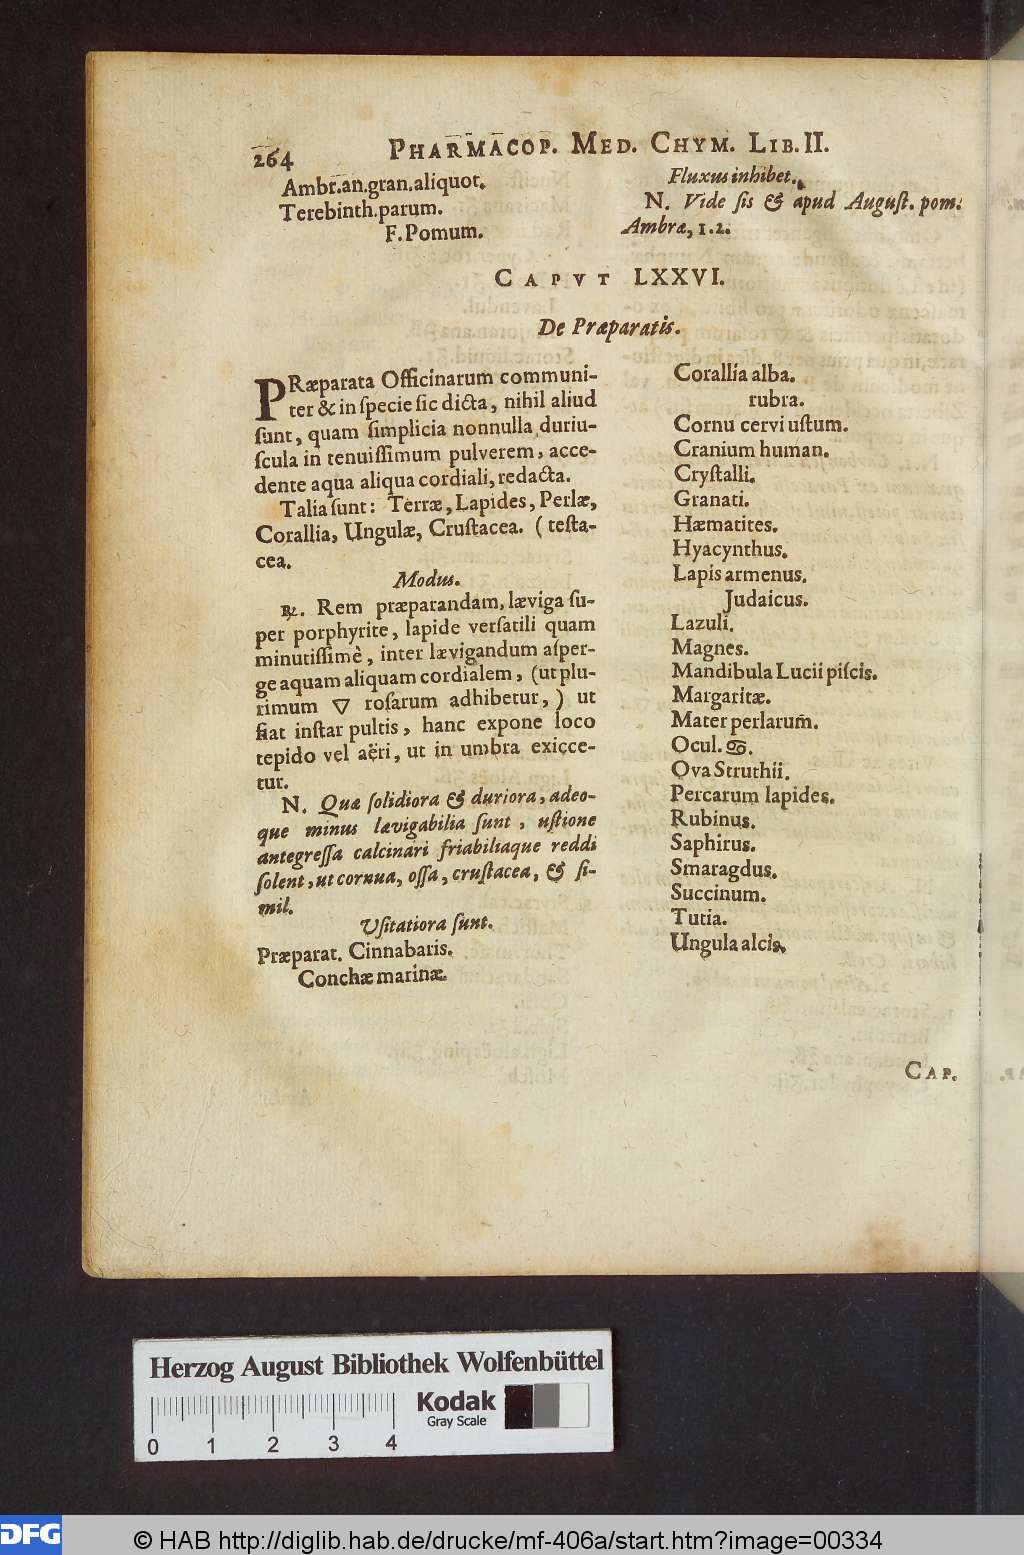 264
PHARMACOP. MED. CHYM. LIB. II.
Ambr. an. gran. aliquot.
Terebinth. parum.
F. Pomum.
Fluxus inhibet.
N. Vide ſis & apud Auguſt. pom.
Ambræ, 1. 2.
CAPVT LXXVI.
De Præparatis.
PRæparata Officinarum communi-
ter & in ſpecie ſic dicta, nihil aliud
ſunt, quam ſimplicia nonnulla duriu-
ſcula in tenuiſſimum pulverem, acce-
dente aqua aliqua cordiali, redacta.
Talia ſunt: Terræ, Lapides, Perlæ,
Corallia, Ungulæ, Cruſtacea. (teſta-
cea.
Modus.
℞. Rem præparandam, læviga ſu-
per porphyrite, lapide verſatili quam
minutiſſimè, inter lævigandum aſper-
ge aquam aliquam cordialem, (ut plu-
rimum 🜄 roſarum adhibetur,) ut
fiat inſtar pultis, hanc expone loco
tepido vel aëri, ut in umbra exicce-
tur.
N. Quæ ſolidiora & duriora, adeo-
que minus lævigabilia ſunt, uſtione
antegreſſa calcinari friabiliaque reddi
ſolent, ut cornua, oſſa, cruſtacea, & ſi-
mil.
Uſitatiora ſunt.
Præparat. Cinnabaris.
Conchæ marinæ.
Corallia alba.
rubra.
Cornu cervi uſtum.
Cranium human.
Cryſtalli.
Granati.
Hæmatites.
Hyacynthus.
Lapis armenus.
Judaicus.
Lazuli.
Magnes.
Mandibula Lucii piſcis.
Margaritæ.
Mater perlarum̃.
Ocul. ♋.
Ova Struthii.
Percarum lapides.
Rubinus.
Saphirus.
Smaragdus.
Succinum.
Tutia.
Ungula alcis.
CAP.
Herzog August Bibliothek Wolfenbüttel
Kodak
Gray Scale
0 1 2 3 4
DFG
© HAB http://diglib.hab.de/drucke/mf-406a/start.htm?image=00334